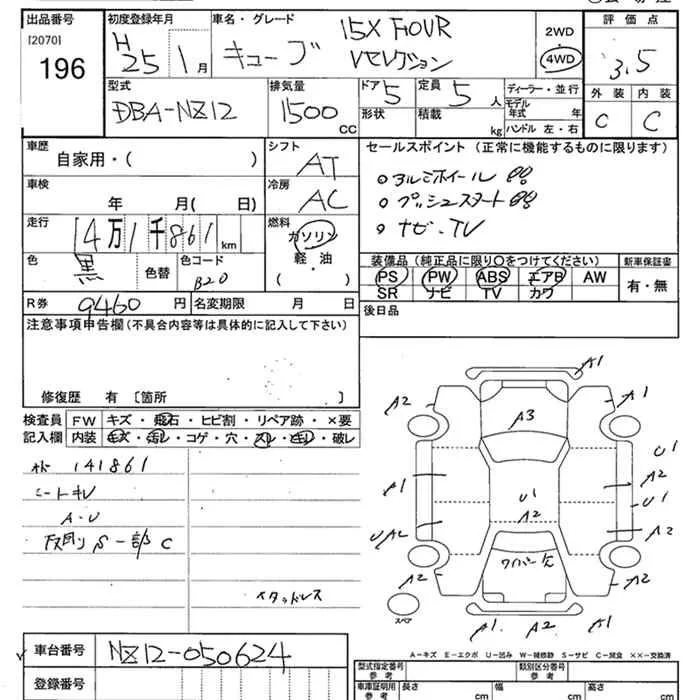 出品番号 [2070] 196
初度登録年月 H25 1月
車名・グレード キューブ 15X FOUR Vセレクション
2WD 4WD
評価点 3.5
外装 C 内装 C
型式 DBA-NZ12
排気量 1500 CC
ドア 5 形状
定員 5 人 積載 kg
ディーラー・並行
モデル年式 年
ハンドル 左・右
車歴 自家用・( )
シフト AT
車検 年 月( 日)
冷房 AC
走行 14万1千861 km
燃料 ガソリン 軽油・( )
色 黒 色替 色コード B20
セールスポイント (正常に機能するものに限ります)
○アルミホイール
○プッシュスタート
・ナビ・TV
装備品(純正品に限り○をつけてください) 新車保証書
PS PW ABS エアB AW 有・無
SR ナビ TV カワ
R券 9460 円 名変期限 月 日
後日品
注意事項申告欄(不具合内容等は具体的に記入して下さい)
修復歴 有 〔箇所 〕
検査員記入欄 FW キズ・飛石・ヒビ割・リペア跡・×要
内装 キズ・汚し・コゲ・穴・スレ・ヒビ・破レ
141861
シートキレ
A・U
下回りS 一部C
イタッドレス
A1
A2 A1
A3
U1
A1 A2
U1 U1
A2 A2
ワイパー欠
A2 A2
スペア
A1 A2 A1
A-キズ E-エクボ U-凹み W-補修跡 S-サビ C-腐食 ××-交換済
車台番号 NZ12-050624
登録番号
型式指定番号 参考 類別区分番号 参考
車庫証明用 参考 長さ cm 幅 cm 高さ cm